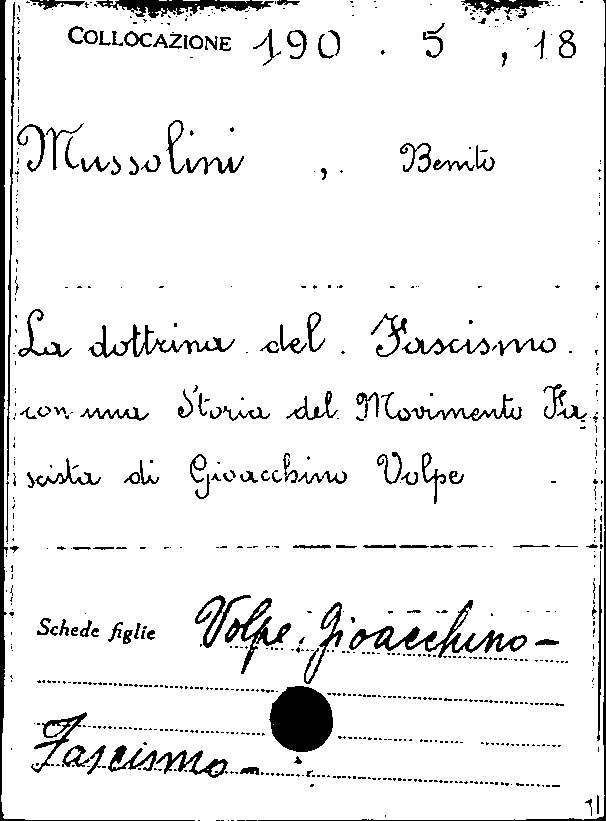 COLLOCAZIONE 190 . 5 , 18
Mussolini , Benito
La dottrina del Fascismo
con una Storia del Movimento Fa-
scista di Gioacchino Volpe
Schede figlie Volpe, Gioacchino -
Fascismo -